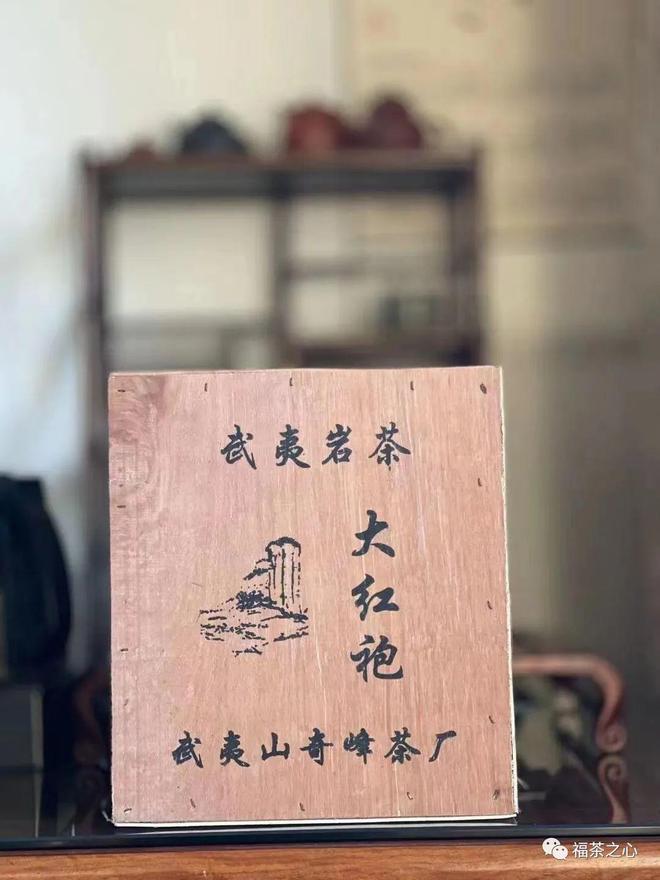 武夷岩茶
大红袍
武夷山奇峰茶厂
福茶之心